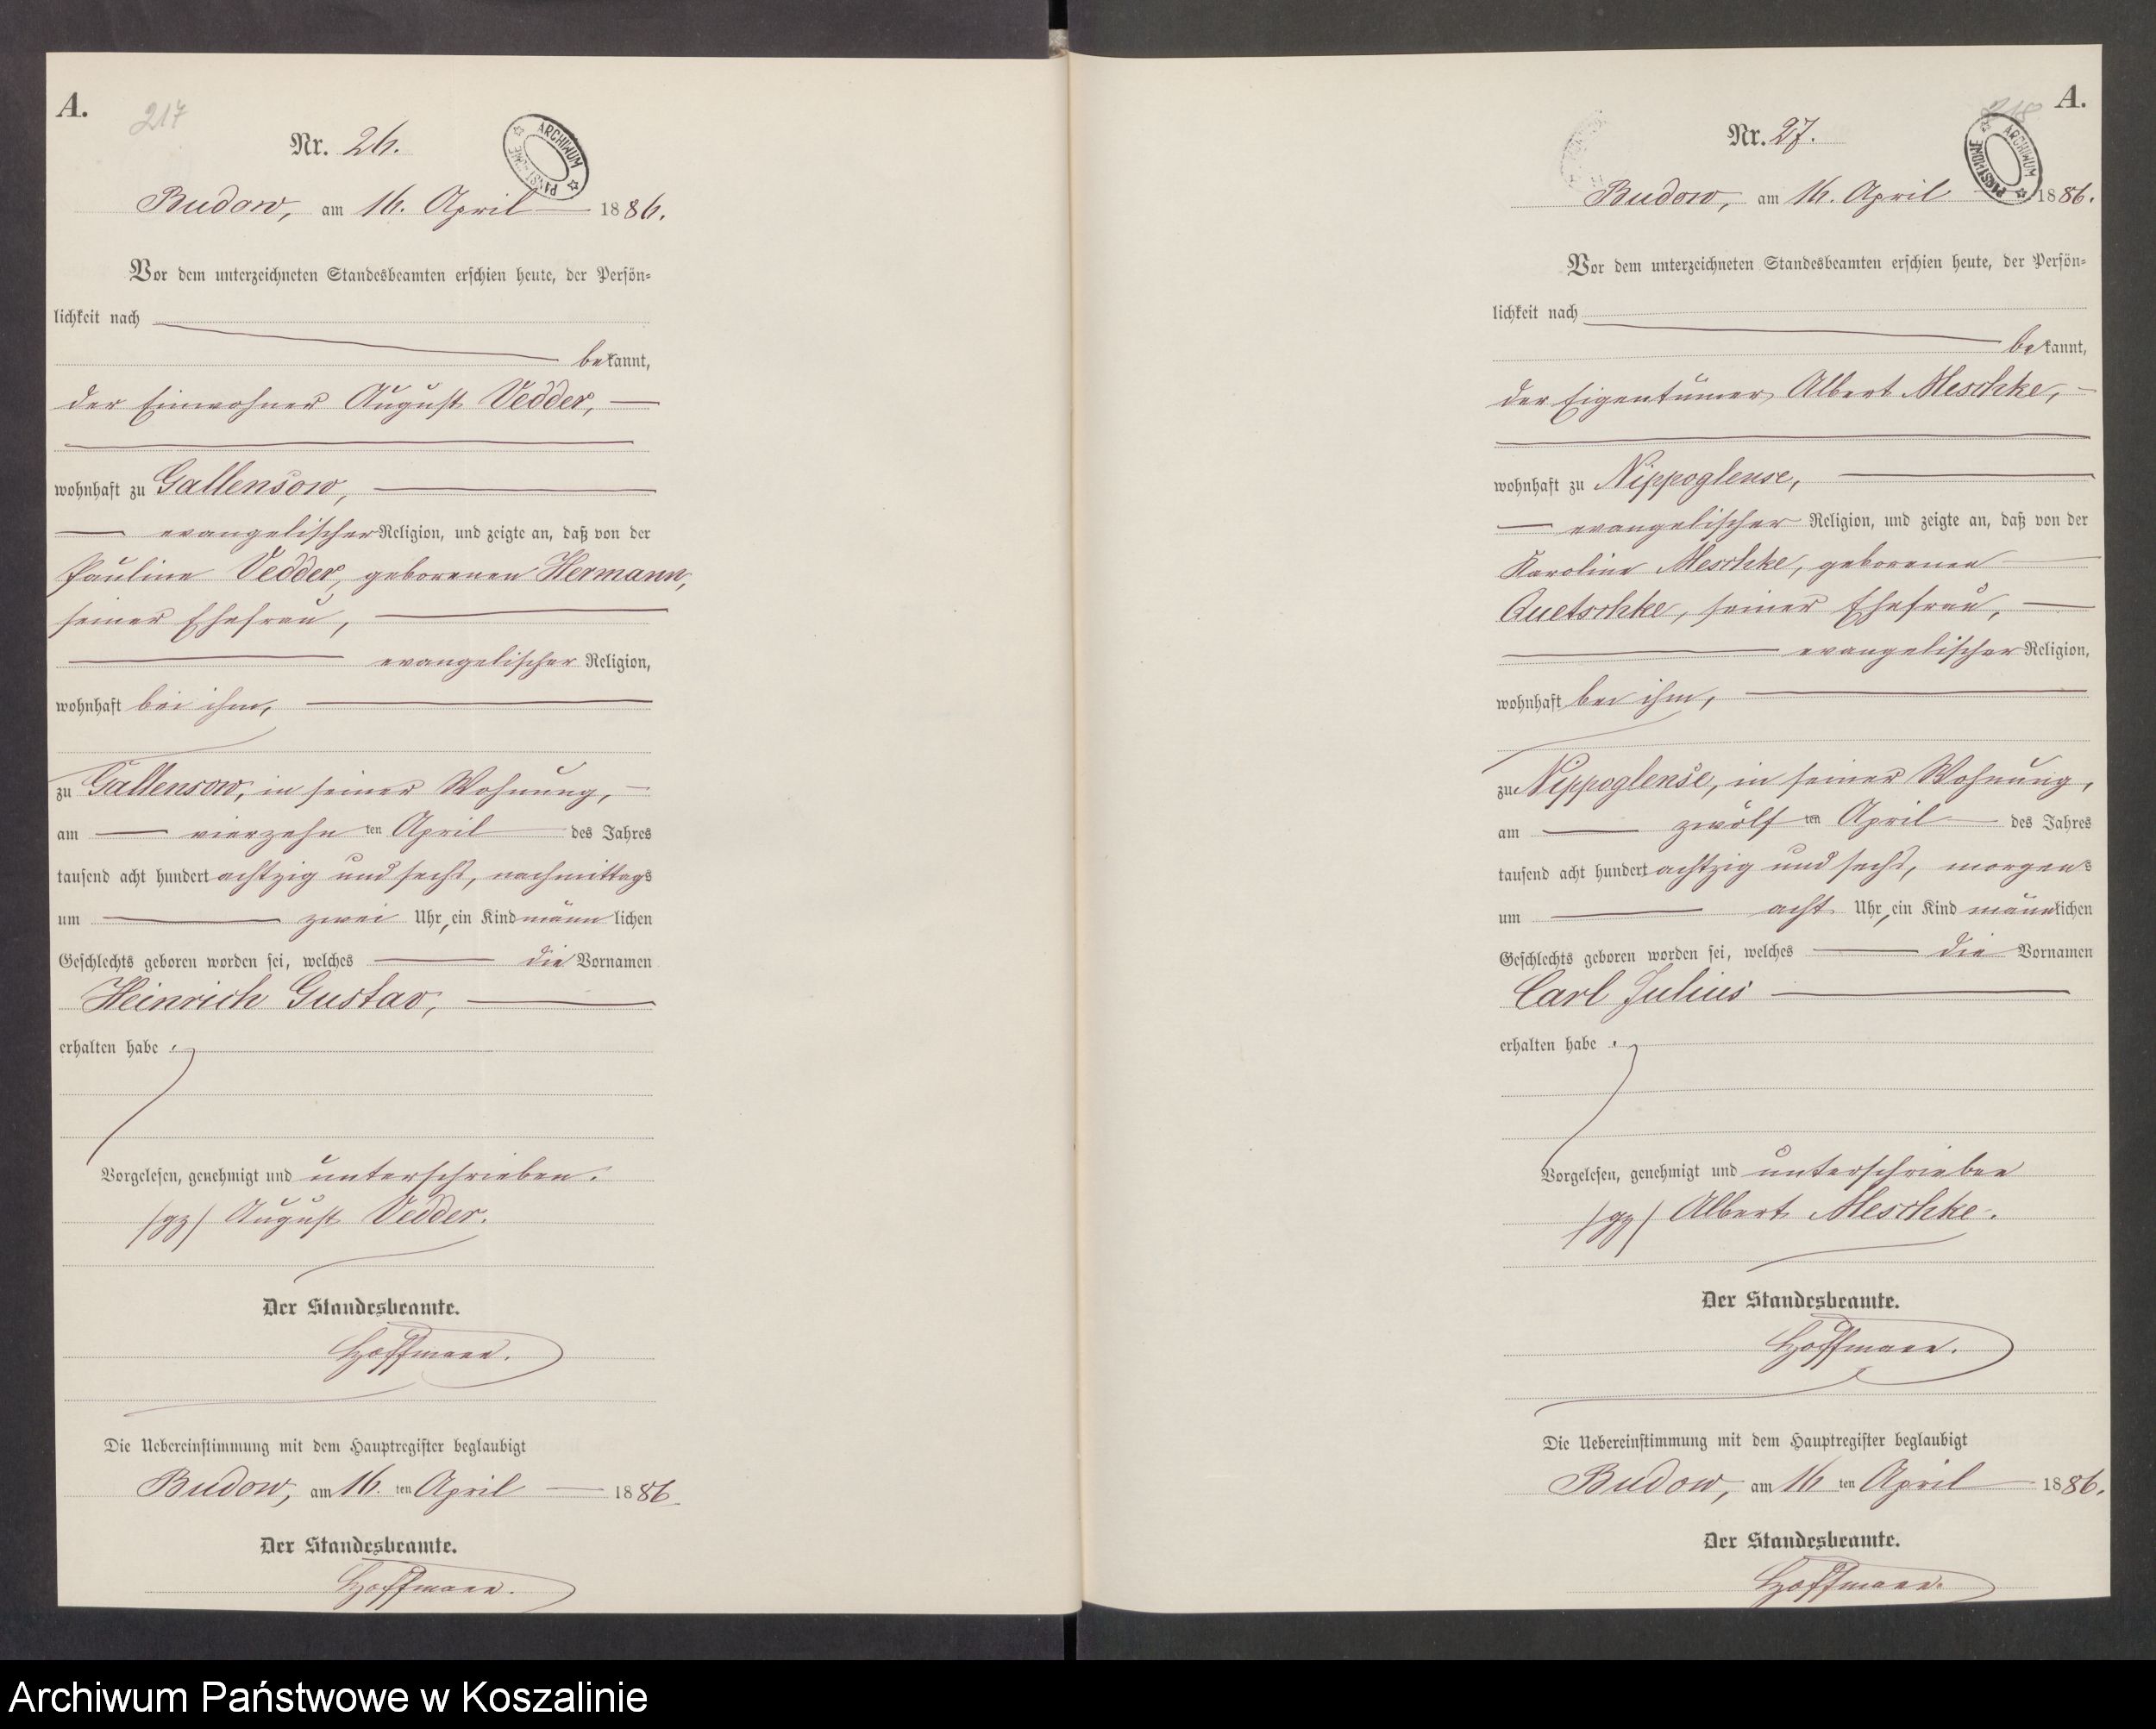 A.
217
Nr. 26.
ARCHIWUM PAŃSTWOWE
Budow, am 16. April 1886.
Vor dem unterzeichneten Standesbeamten erschien heute, der Persön-
lichkeit nach
bekannt,
der Einwohner August Vedder,
wohnhaft zu Gallensow,
evangelischer Religion, und zeigte an, daß von der
Pauline Vedder, geborenen Hermann,
seiner Ehefrau,
evangelischer Religion,
wohnhaft bei ihm,
zu Gallensow, in seiner Wohnung,
am vierzehn ten April des Jahres
tausend acht hundert achtzig und sechs, nachmittags
um zwei Uhr, ein Kind männlichen
Geschlechts geboren worden sei, welches die Vornamen
Heinrich Gustav,
erhalten habe.
Vorgelesen, genehmigt und unterschrieben.
/gz/ August Vedder.
Der Standesbeamte.
Hoffmann.
Die Uebereinstimmung mit dem Hauptregister beglaubigt
Budow, am 16. ten April 1886
Der Standesbeamte.
Hoffmann.
A.
218
Nr. 27.
ARCHIWUM PAŃSTWOWE
Budow, am 16. April 1886.
Vor dem unterzeichneten Standesbeamten erschien heute, der Persön-
lichkeit nach
bekannt,
der Eigentümer Albert Meschke,
wohnhaft zu Nippoglense,
evangelischer Religion, und zeigte an, daß von der
Karoline Meschke, geborenen
Quetschke, seiner Ehefrau,
evangelischer Religion,
wohnhaft bei ihm,
zu Nippoglense, in seiner Wohnung,
am zwölf ten April des Jahres
tausend acht hundert achtzig und sechs, morgens
um acht Uhr, ein Kind männlichen
Geschlechts geboren worden sei, welches die Vornamen
Carl Julius
erhalten habe.
Vorgelesen, genehmigt und unterschrieben
/gz/ Albert Meschke.
Der Standesbeamte.
Hoffmann.
Die Uebereinstimmung mit dem Hauptregister beglaubigt
Budow, am 16 ten April 1886.
Der Standesbeamte.
Hoffmann.
Archiwum Państwowe w Koszalinie